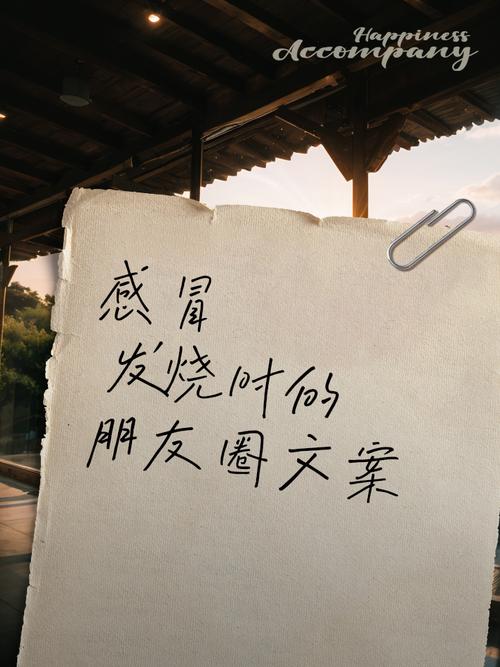 Happiness
Accompany
感冒
发烧时的
朋友圈文案